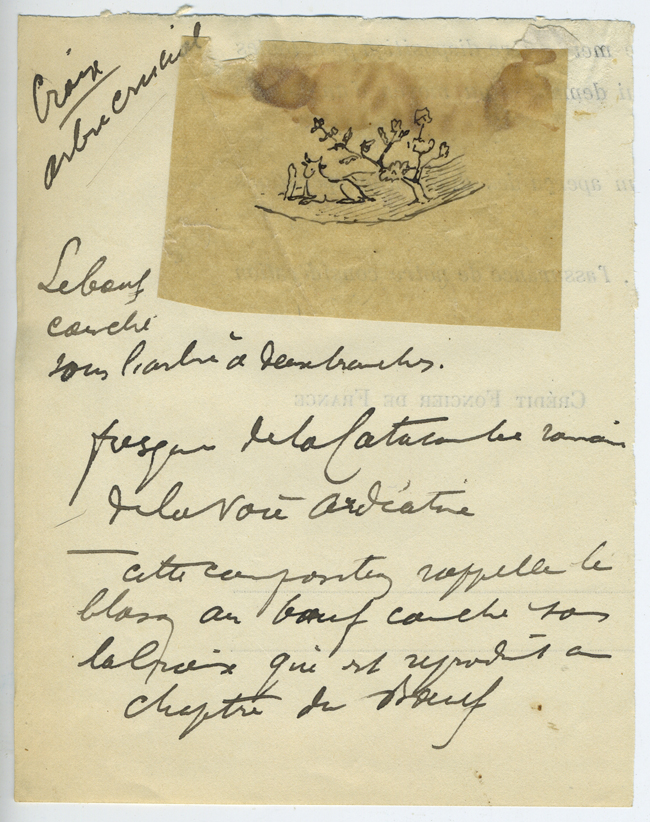 Croix
arbre crucial
Le bœuf
couché
sous l'arbre à deux branches.
fresque de la Catacombe romain
de la voie ardéatine
cette composition rappelle le
blason au bœuf couché sous
la Croix qui est reproduit au
chapitre du Bœuf
CRÉDIT FONCIER DE FRANCE